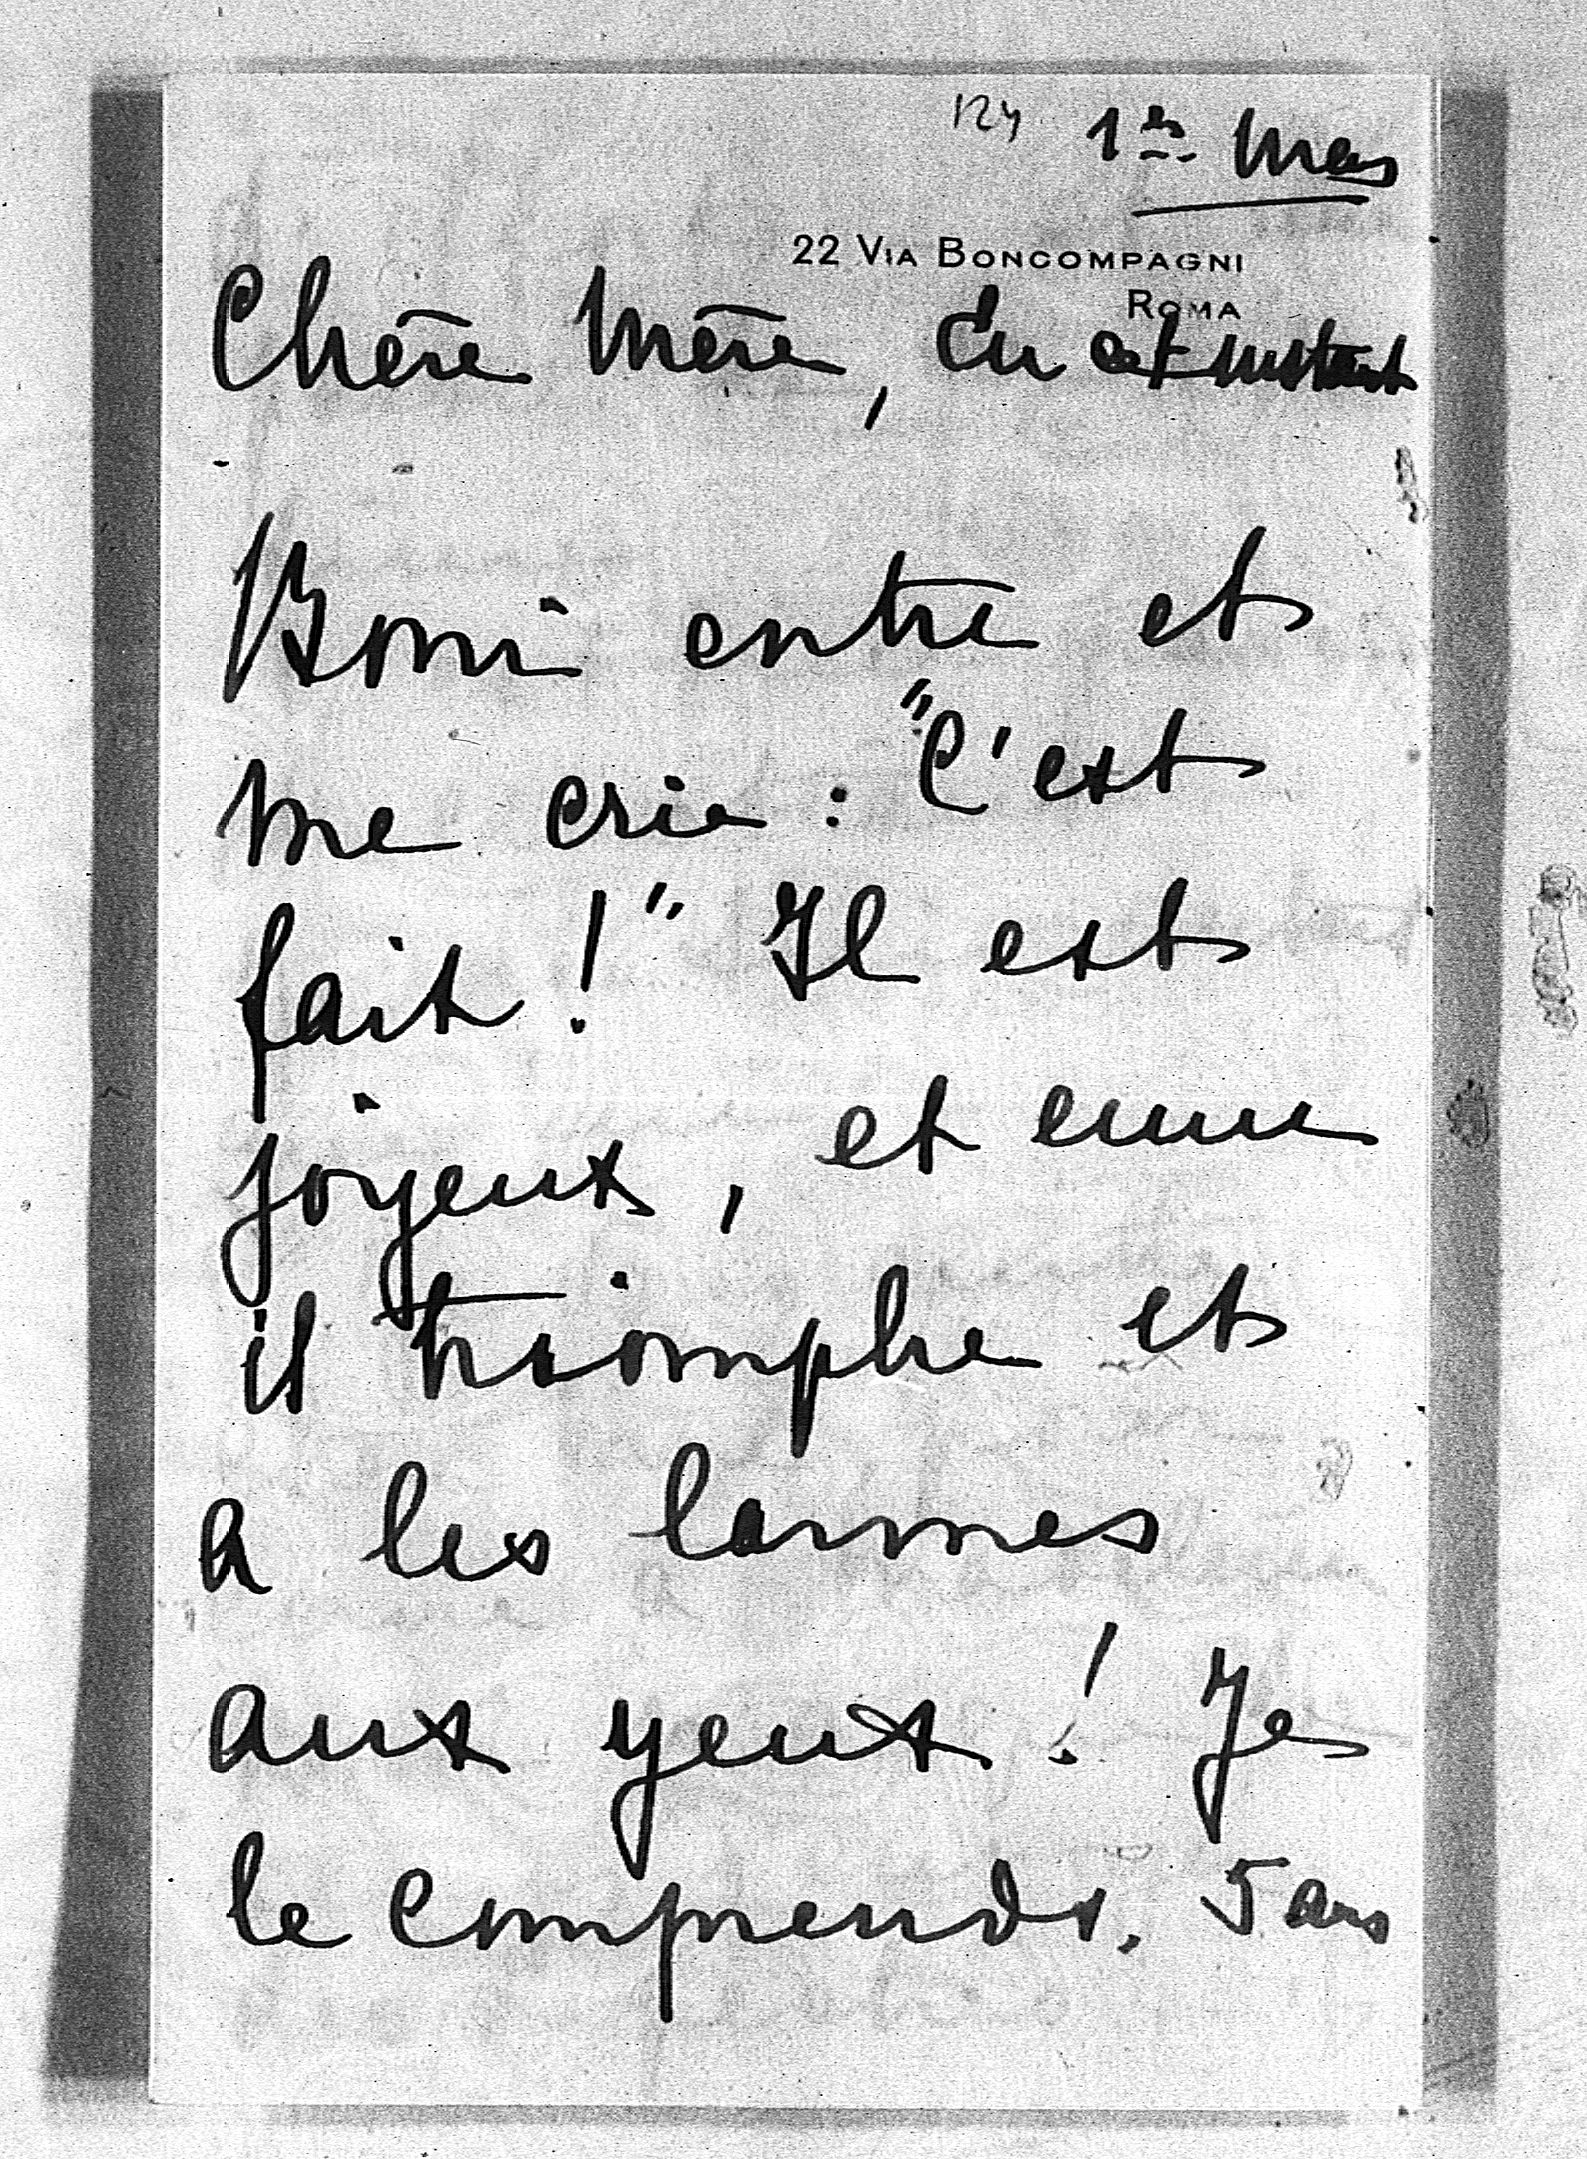 124 1er Mars
22 VIA BONCOMPAGNI
ROMA
Chère Mère, En cet instant
Boni entre et
me crie : "C'est
fait !" Il est
joyeux, et ému
il triomphe et
a les larmes
aux yeux ! Je
le comprends. 5 ans